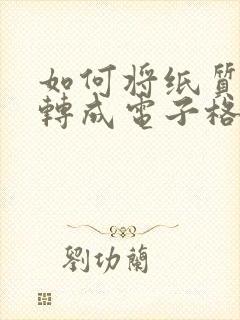 如何将纸质
轉成電子格
劉功蘭